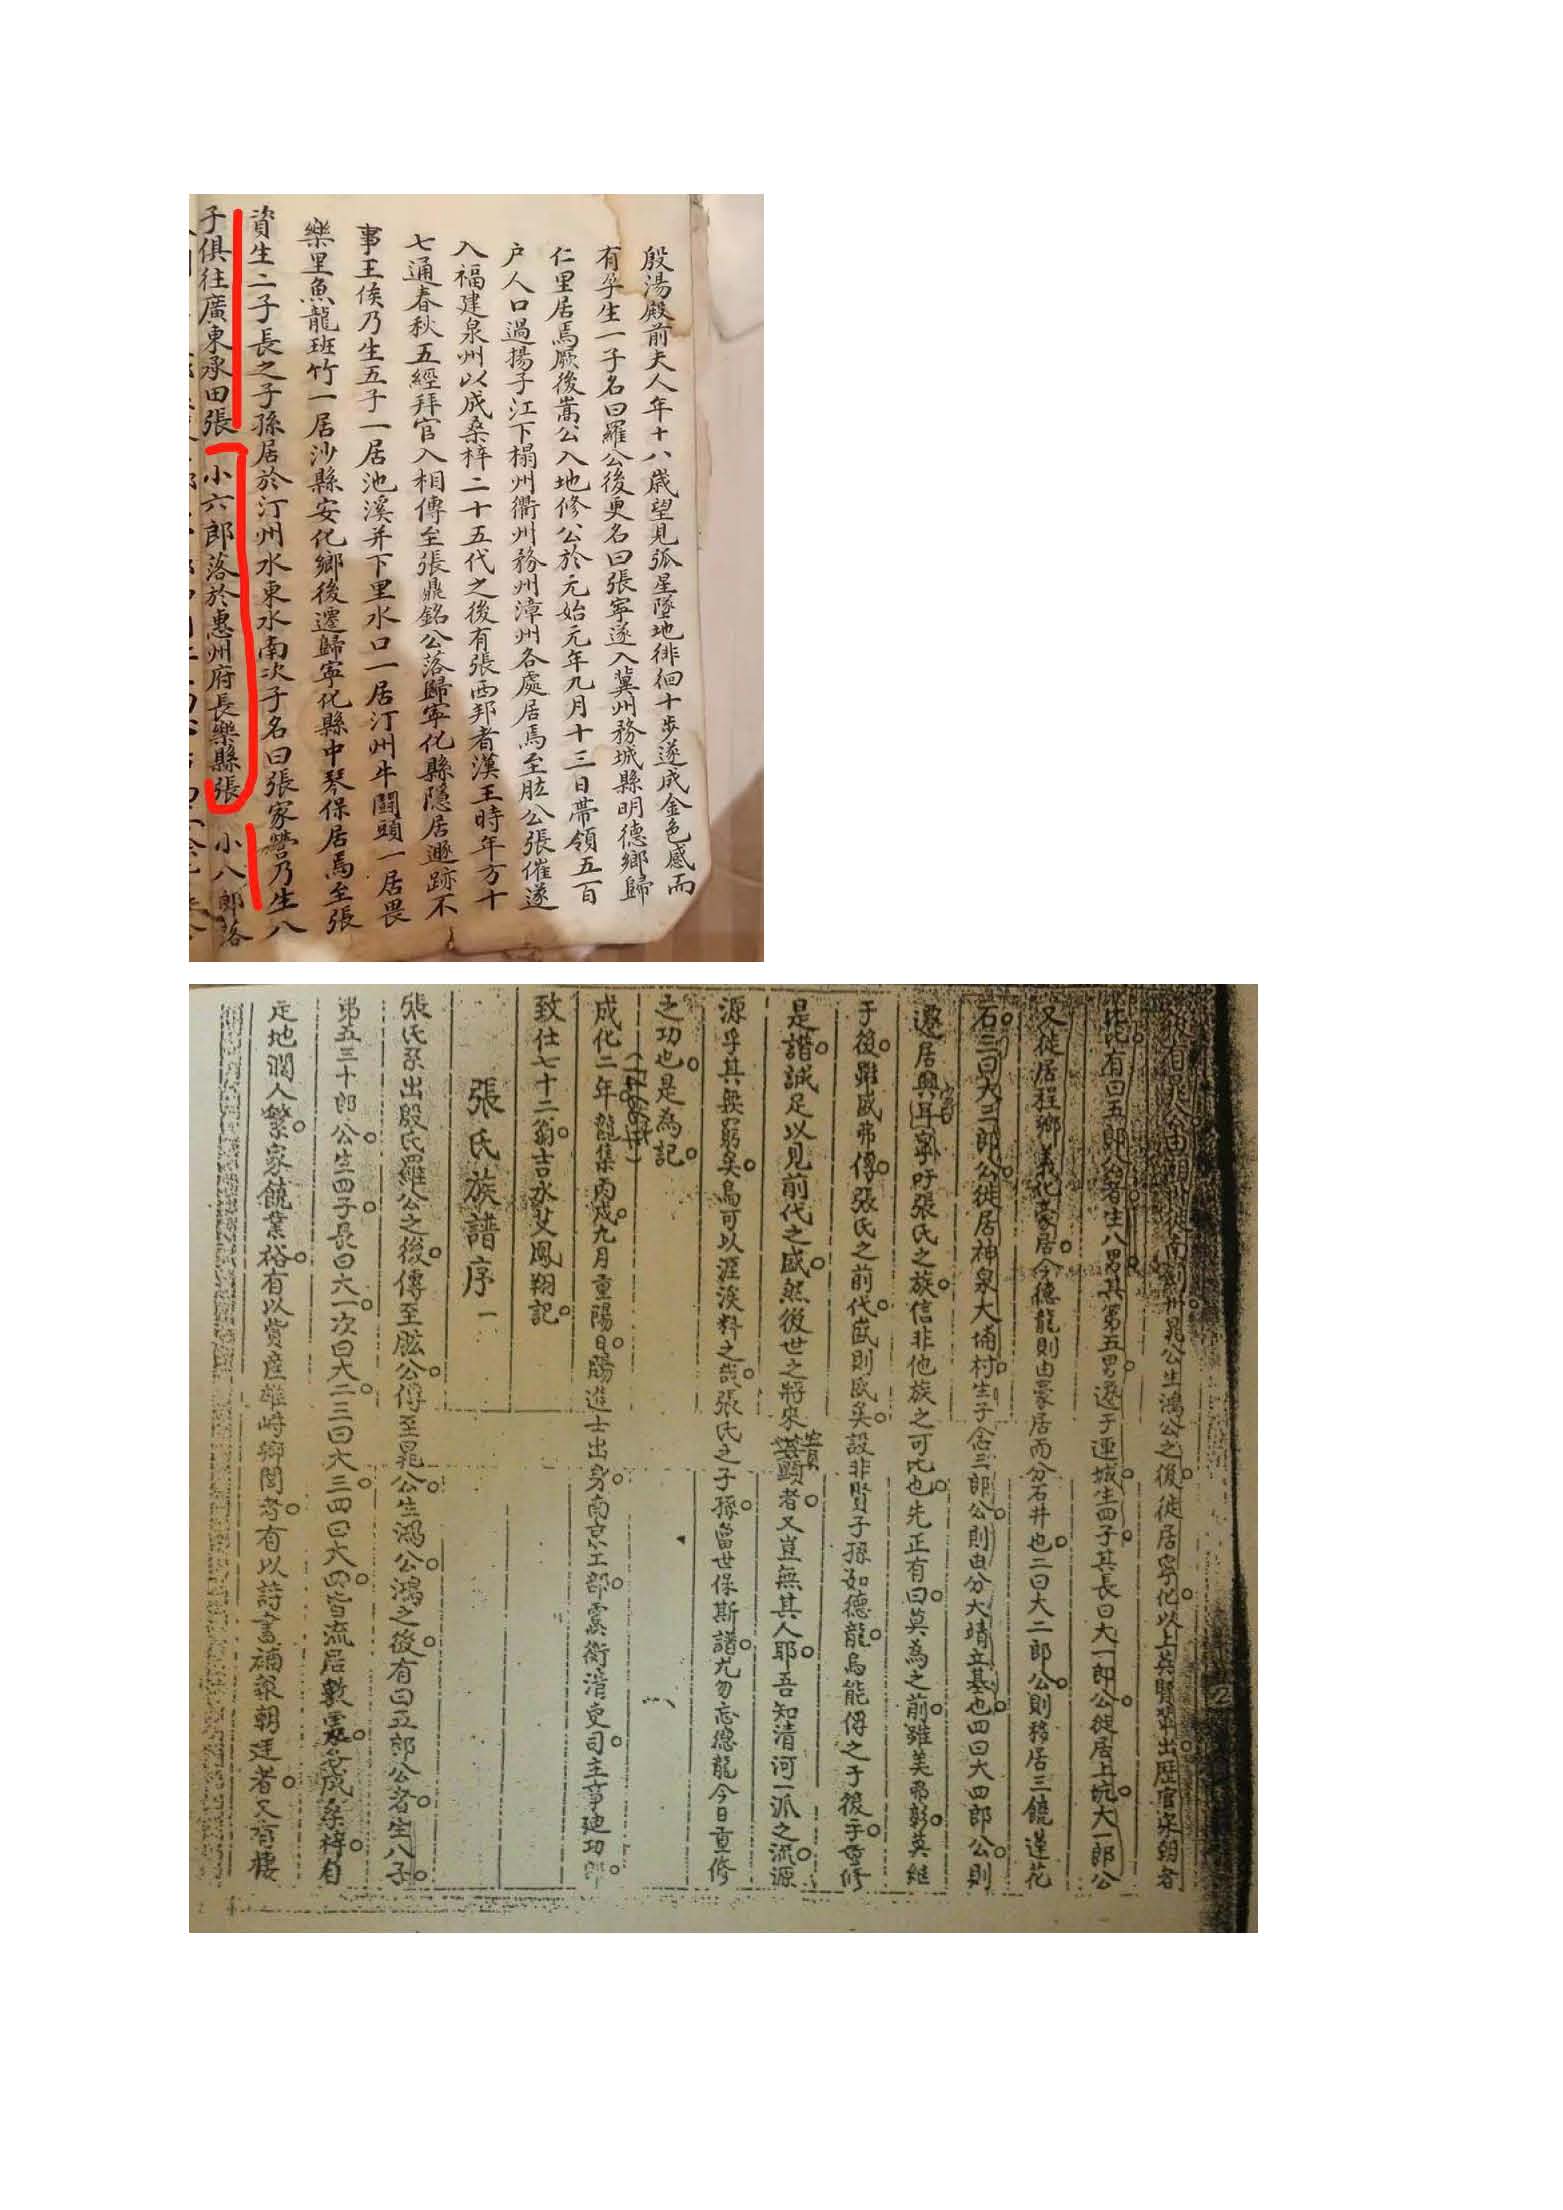 殷湯殿前夫人年十八歲望見弧星墜地徘徊十步遂成金色感而
有孕生一子名曰羅公後更名曰張寧遂入冀州務城縣明德鄉歸
仁里居焉厥後嵩公入地修公於元始元年九月十三日帶領五百
户人口過揚子江下榻州衢州務州漳州各處居焉至肱公張催遂
入福建泉州以成桑梓二十五代之後有張西邦者漢王時年方十
七通春秋五經拜官入相傳至張鼎銘公落歸寧化縣隱居遯跡不
事王侯乃生五子一居池溪并下里水口一居汀州牛闘頭一居畏
樂里魚龍班竹一居沙縣安化鄉後遷歸寧化縣中琴保居焉至張
資生二子長之子孫居於汀州水東水南次子名曰張家營乃生八
子俱往廣東承田張 小六郎落於惠州府長樂縣張 小八郎落
南劍州晃公生鴻公之後徙居寧化以上英賢輩出歴官宋朝者
比比有曰五郎公者生八男其第五男遷于連城生四子其長曰大一郎公徙居上坑大一郎公
又徙居程鄉義化豪居今德龍則由豪居而分石井也二曰大二郎公則移居三饒蓮花
石三曰大三郎公徙居神泉大埔村生子念三郎公則由分大靖立基也四曰大四郎公則
遷居興寧吁張氏之族信非他族之可比也先正有曰莫為之前雖美弗彰莫継
于後雖盛弗傳張氏之前代盛則盛矣設非賢子孫如德龍烏能傳之于後乎重修
是譜誠足以見前代之盛然後世之將來顕者又豈無其人耶吾知清河一派之流源
源乎其無窮矣烏可以涯涘料之哉張氏之子孫當世保斯譜尤勿忘德龍今日重修
之功也是為記
成化二年龍集丙戍九月重陽日賜進士出身南京工部虞衡清吏司主事廸功郎
致仕七十二翁吉水艾鳳翔記
張氏族譜序一
張氏系出殷氏羅公之後傳至肱公傳至晁公生鴻公鴻之後有曰五郎公者生八子
弟五三十郎公生四子長曰六一次曰大二三曰大三四曰大四皆流居散處各成桑梓自
是地濶人繁家饒業裕有以貲產雄峙鄉閭者有以詩書補衮朝廷者又有棲